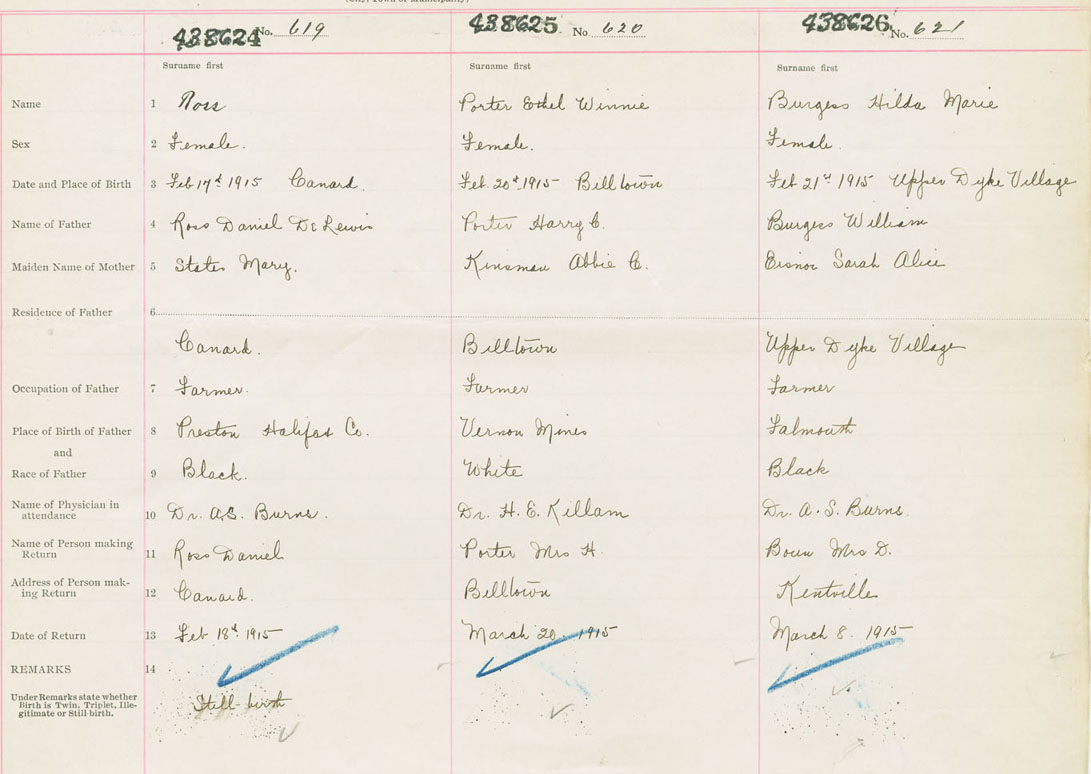 438624 No. 619 438625 No 620 438626 No. 621
Surname first Surname first Surname first
Name 1 Ross Porter Ethel Winnie Burgess Hilda Marie
Sex 2 Female. Female. Female.
Date and Place of Birth 3 Feb 17th 1915 Canard. Feb. 20th 1915 Billtown Feb 21st 1915 Upper Dyke Village
Name of Father 4 Ross Daniel Porter Harry C. Burgess William
Maiden Name of Mother 5 States Mary. Kinsman Abbie C. Sarah Alice
Residence of Father 6
Canard. Billtown Upper Dyke Village
Occupation of Father 7 Farmer. Farmer Farmer
Place of Birth of Father 8 Preston Halifax Co. Vernon Mines Falmouth
and
Race of Father 9 Black. White Black
Name of Physician in
attendance 10 Dr. A.S. Burns. Dr. H. E. Killam Dr. A. S. Burns.
Name of Person making
Return 11 Ross Daniel Porter Mrs H. Mrs D.
Address of Person mak-
ing Return 12 Canard. Billtown Kentville
Date of Return 13 Feb 18th 1915 March 20 1915 March 8. 1915
REMARKS 14
Under Remarks state whether
Birth is Twin, Triplet, Ille-
gitimate or Still birth.
Still birth